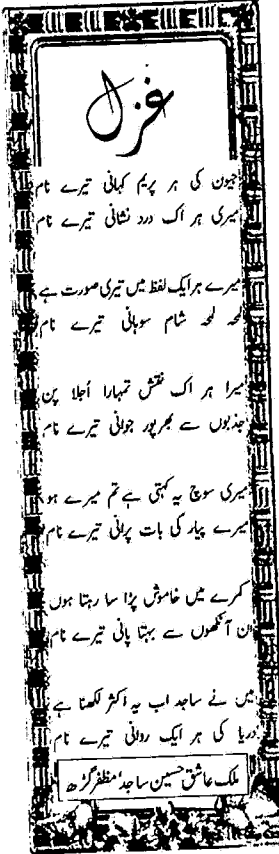 غزل
جیون کی ہر پریم کہانی تیرے نام
میری ہر اک درد نشانی تیرے نام
میرے ہر ایک لفظ میں تیری صورت ہے
لمحہ لمحہ شام سوہانی تیرے نام
میرا ہر اک نقش تمہارا اُجلا پن
جذبوں سے بھرپور جوانی تیرے نام
میری سوچ یہ کہتی ہے تم میرے ہو
میرے پیار کی بات پرانی تیرے نام
کمرے میں خاموش پڑا سا رہتا ہوں
ان آنکھوں سے بہتا پانی تیرے نام
میں نے ساجد اب یہ اکثر لکھنا ہے
دریا کی ہر ایک روانی تیرے نام
ملک عاشق حسین ساجد، مظفر گڑھ